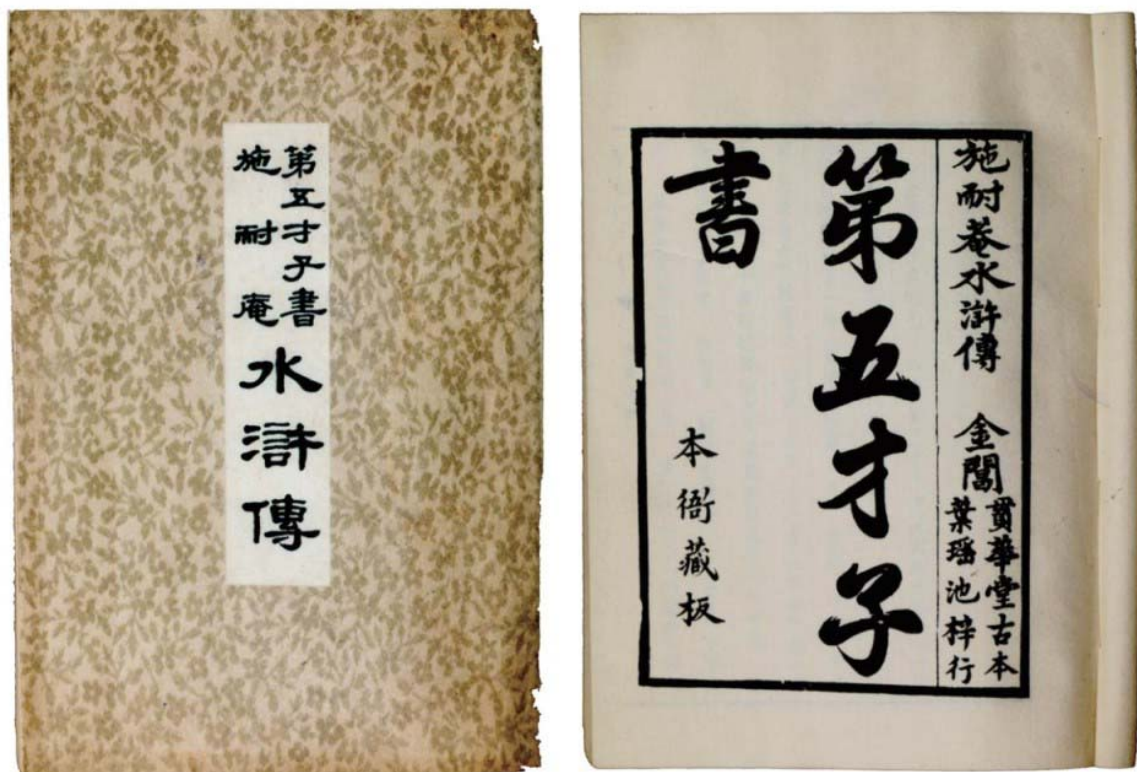 第五才子書
施耐庵
水滸傳
施耐菴水滸傳 金閶
貫華堂古本
葉瑶池梓行
第五才子
書
本衙藏板